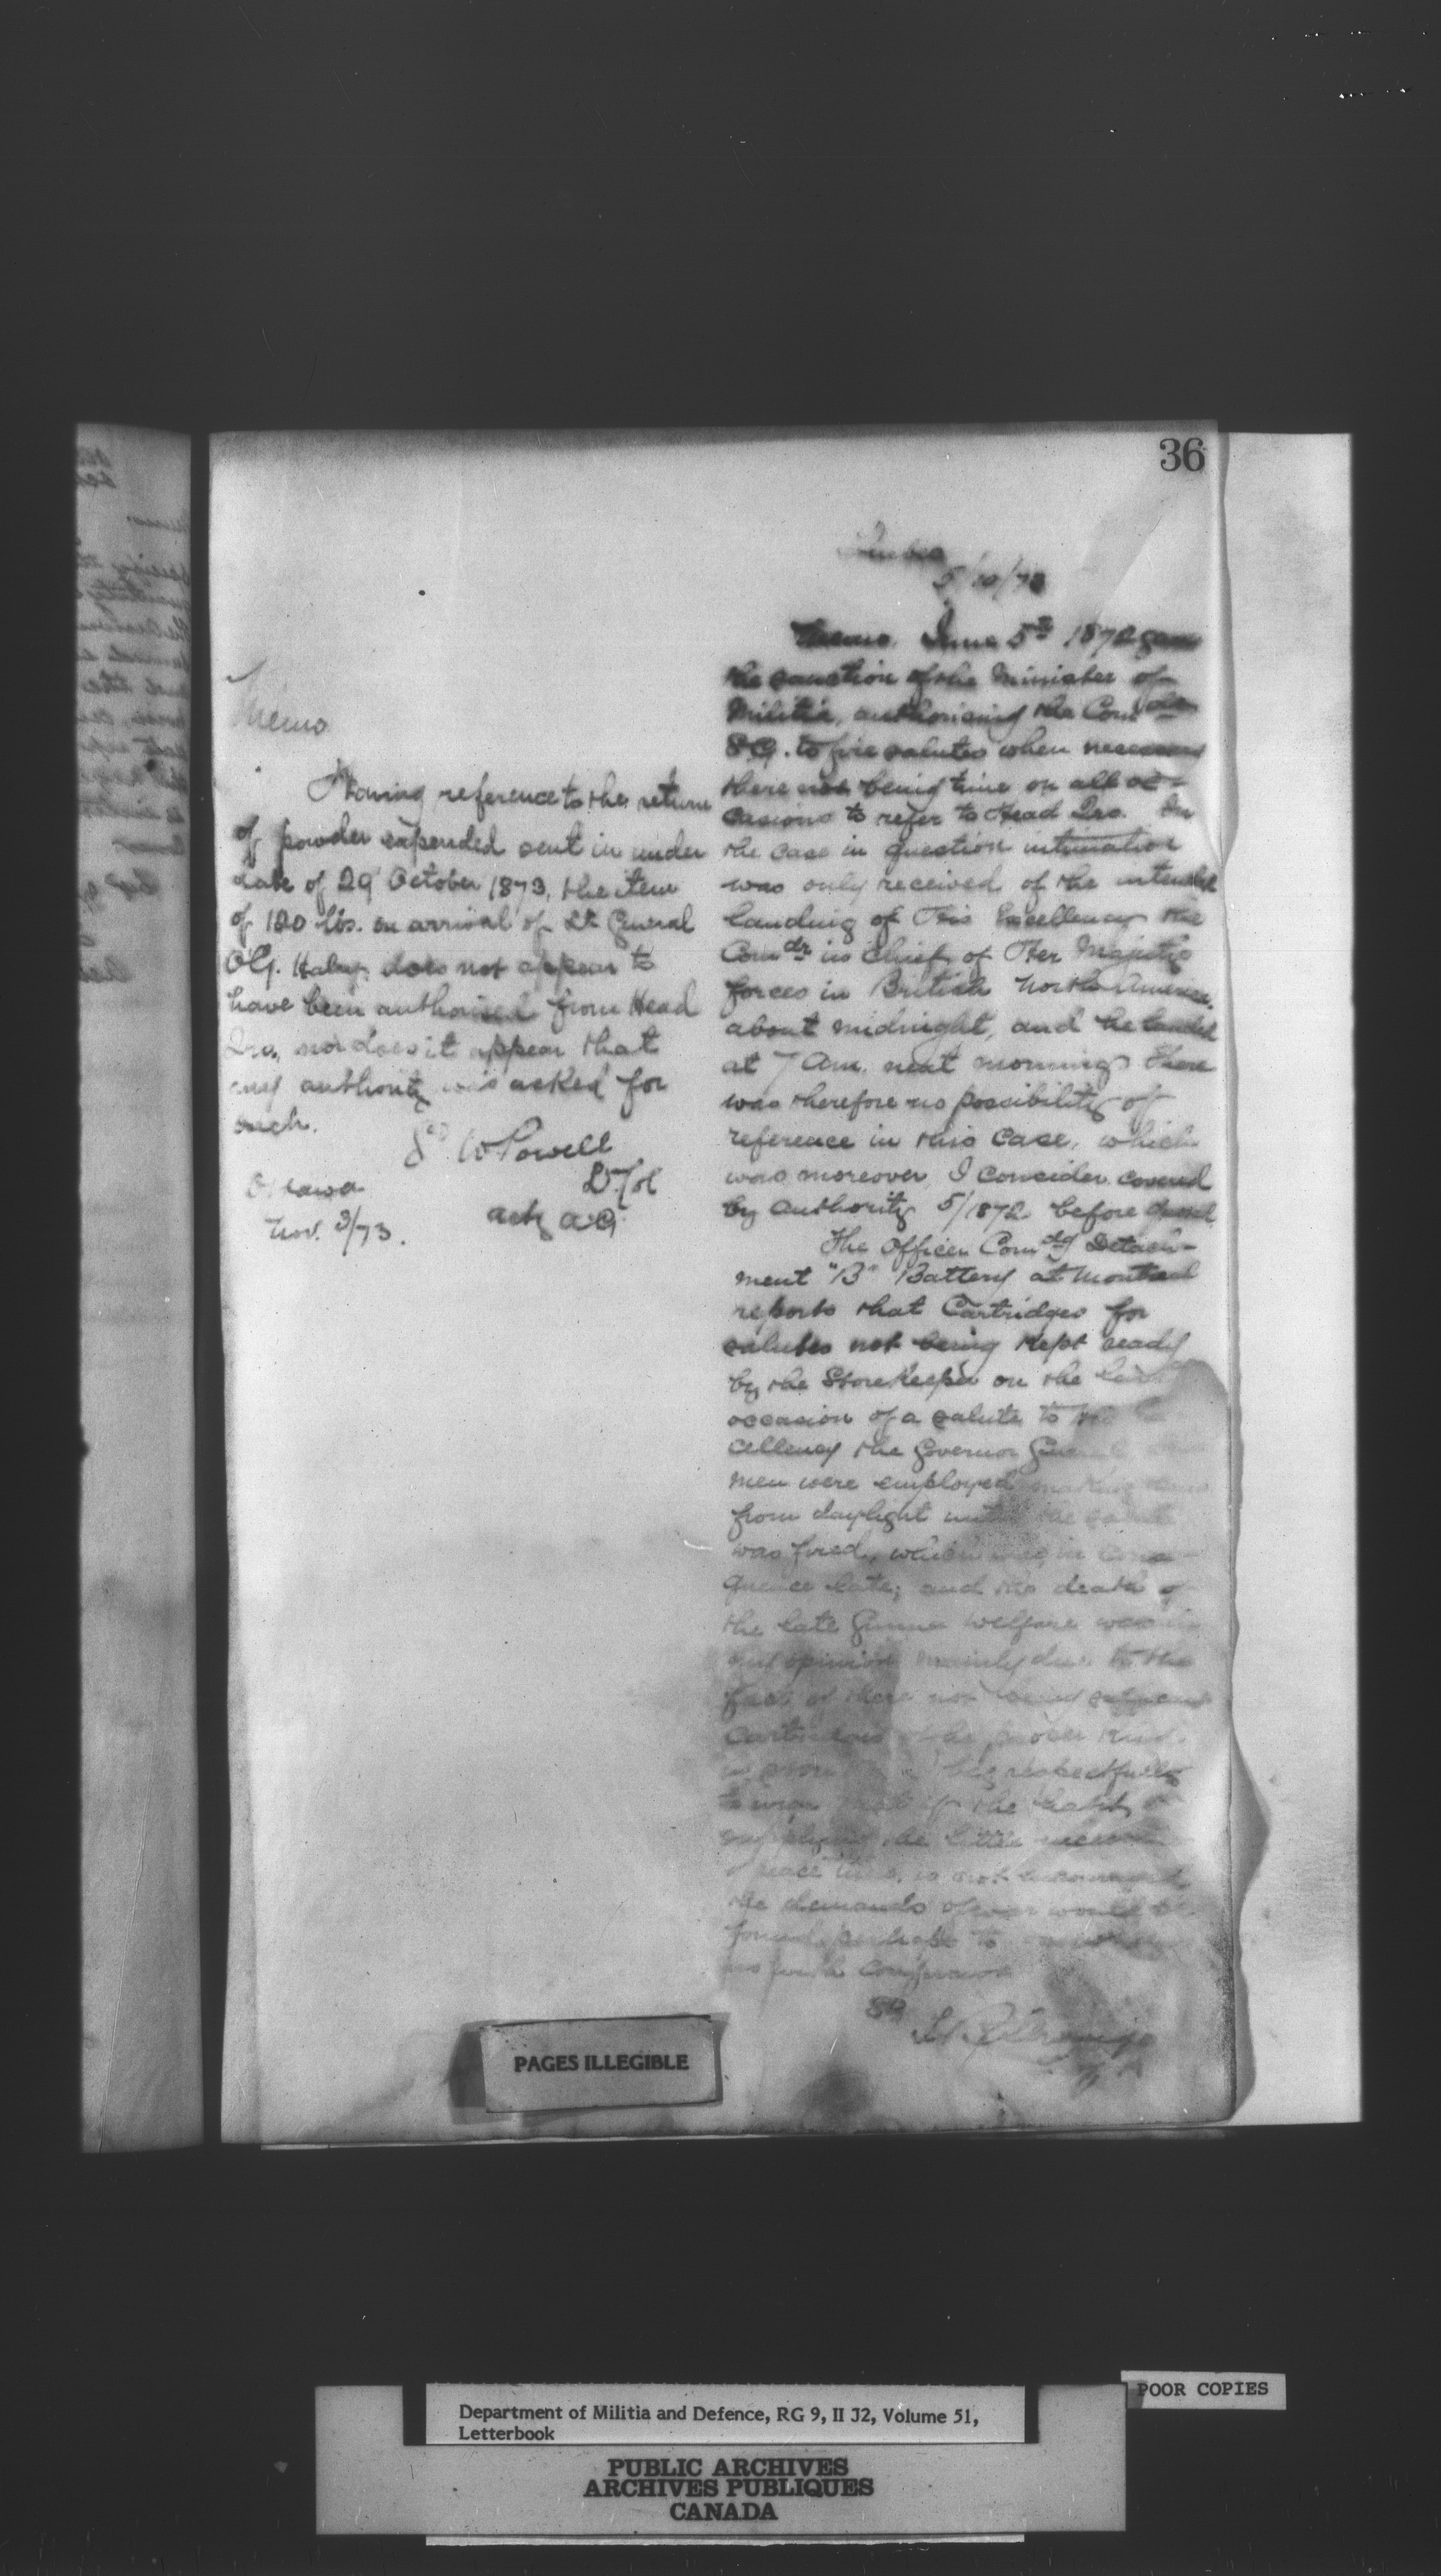 36
Memo
Having reference to the return
of powder expended sent in under
date of 29 October 1873, the item
of 120 lbs. on arrival of Lt General
O'G. Haly, does not appear to
have been authorised from Head
Qrs, nor does it appear that
any authority was asked for
such.
Sd W Powell
Lt Col
actg A.G.
Ottawa
Nov. 3/73.
5/10/73
Memo. June 5th 1872 gave
the sanction of the Minister of
Militia, authorising the Comdt
S.G. to fire salutes when necessary
there not being time on all oc-
casions to refer to Head Qrs. In
the case in question intimation
was only received of the intended
landing of His Excellency the
Comdr in Chief of Her Majestys
forces in British North America,
about midnight, and he landed
at 7 Am. next morning. There
was therefore no possibility of
reference in this case, which
was moreover, I consider covered
by authority 5/1872 before
The Officer Comdg Detach-
ment "B" Battery at Montreal
reports that Cartridges for
salutes not being kept ready
by the Storekeeper on the last
occasion of a salute to
cellency the Governor General
men were employed making
from daylight until the salute
was fired, which was, in conse-
quence late; and the death of
the late Gunner Welfare was
my opinion mainly due to the
fact of there not being
Cartridges of the proper kind
beg respectfully
to urge that if the habit
supplying the little
peace time, is not encouraged,
the demands of war would be
found perhaps to
us with confusion
Sd
PAGES ILLEGIBLE
POOR COPIES
Department of Militia and Defence, RG 9, II J2, Volume 51,
Letterbook
PUBLIC ARCHIVES
ARCHIVES PUBLIQUES
CANADA